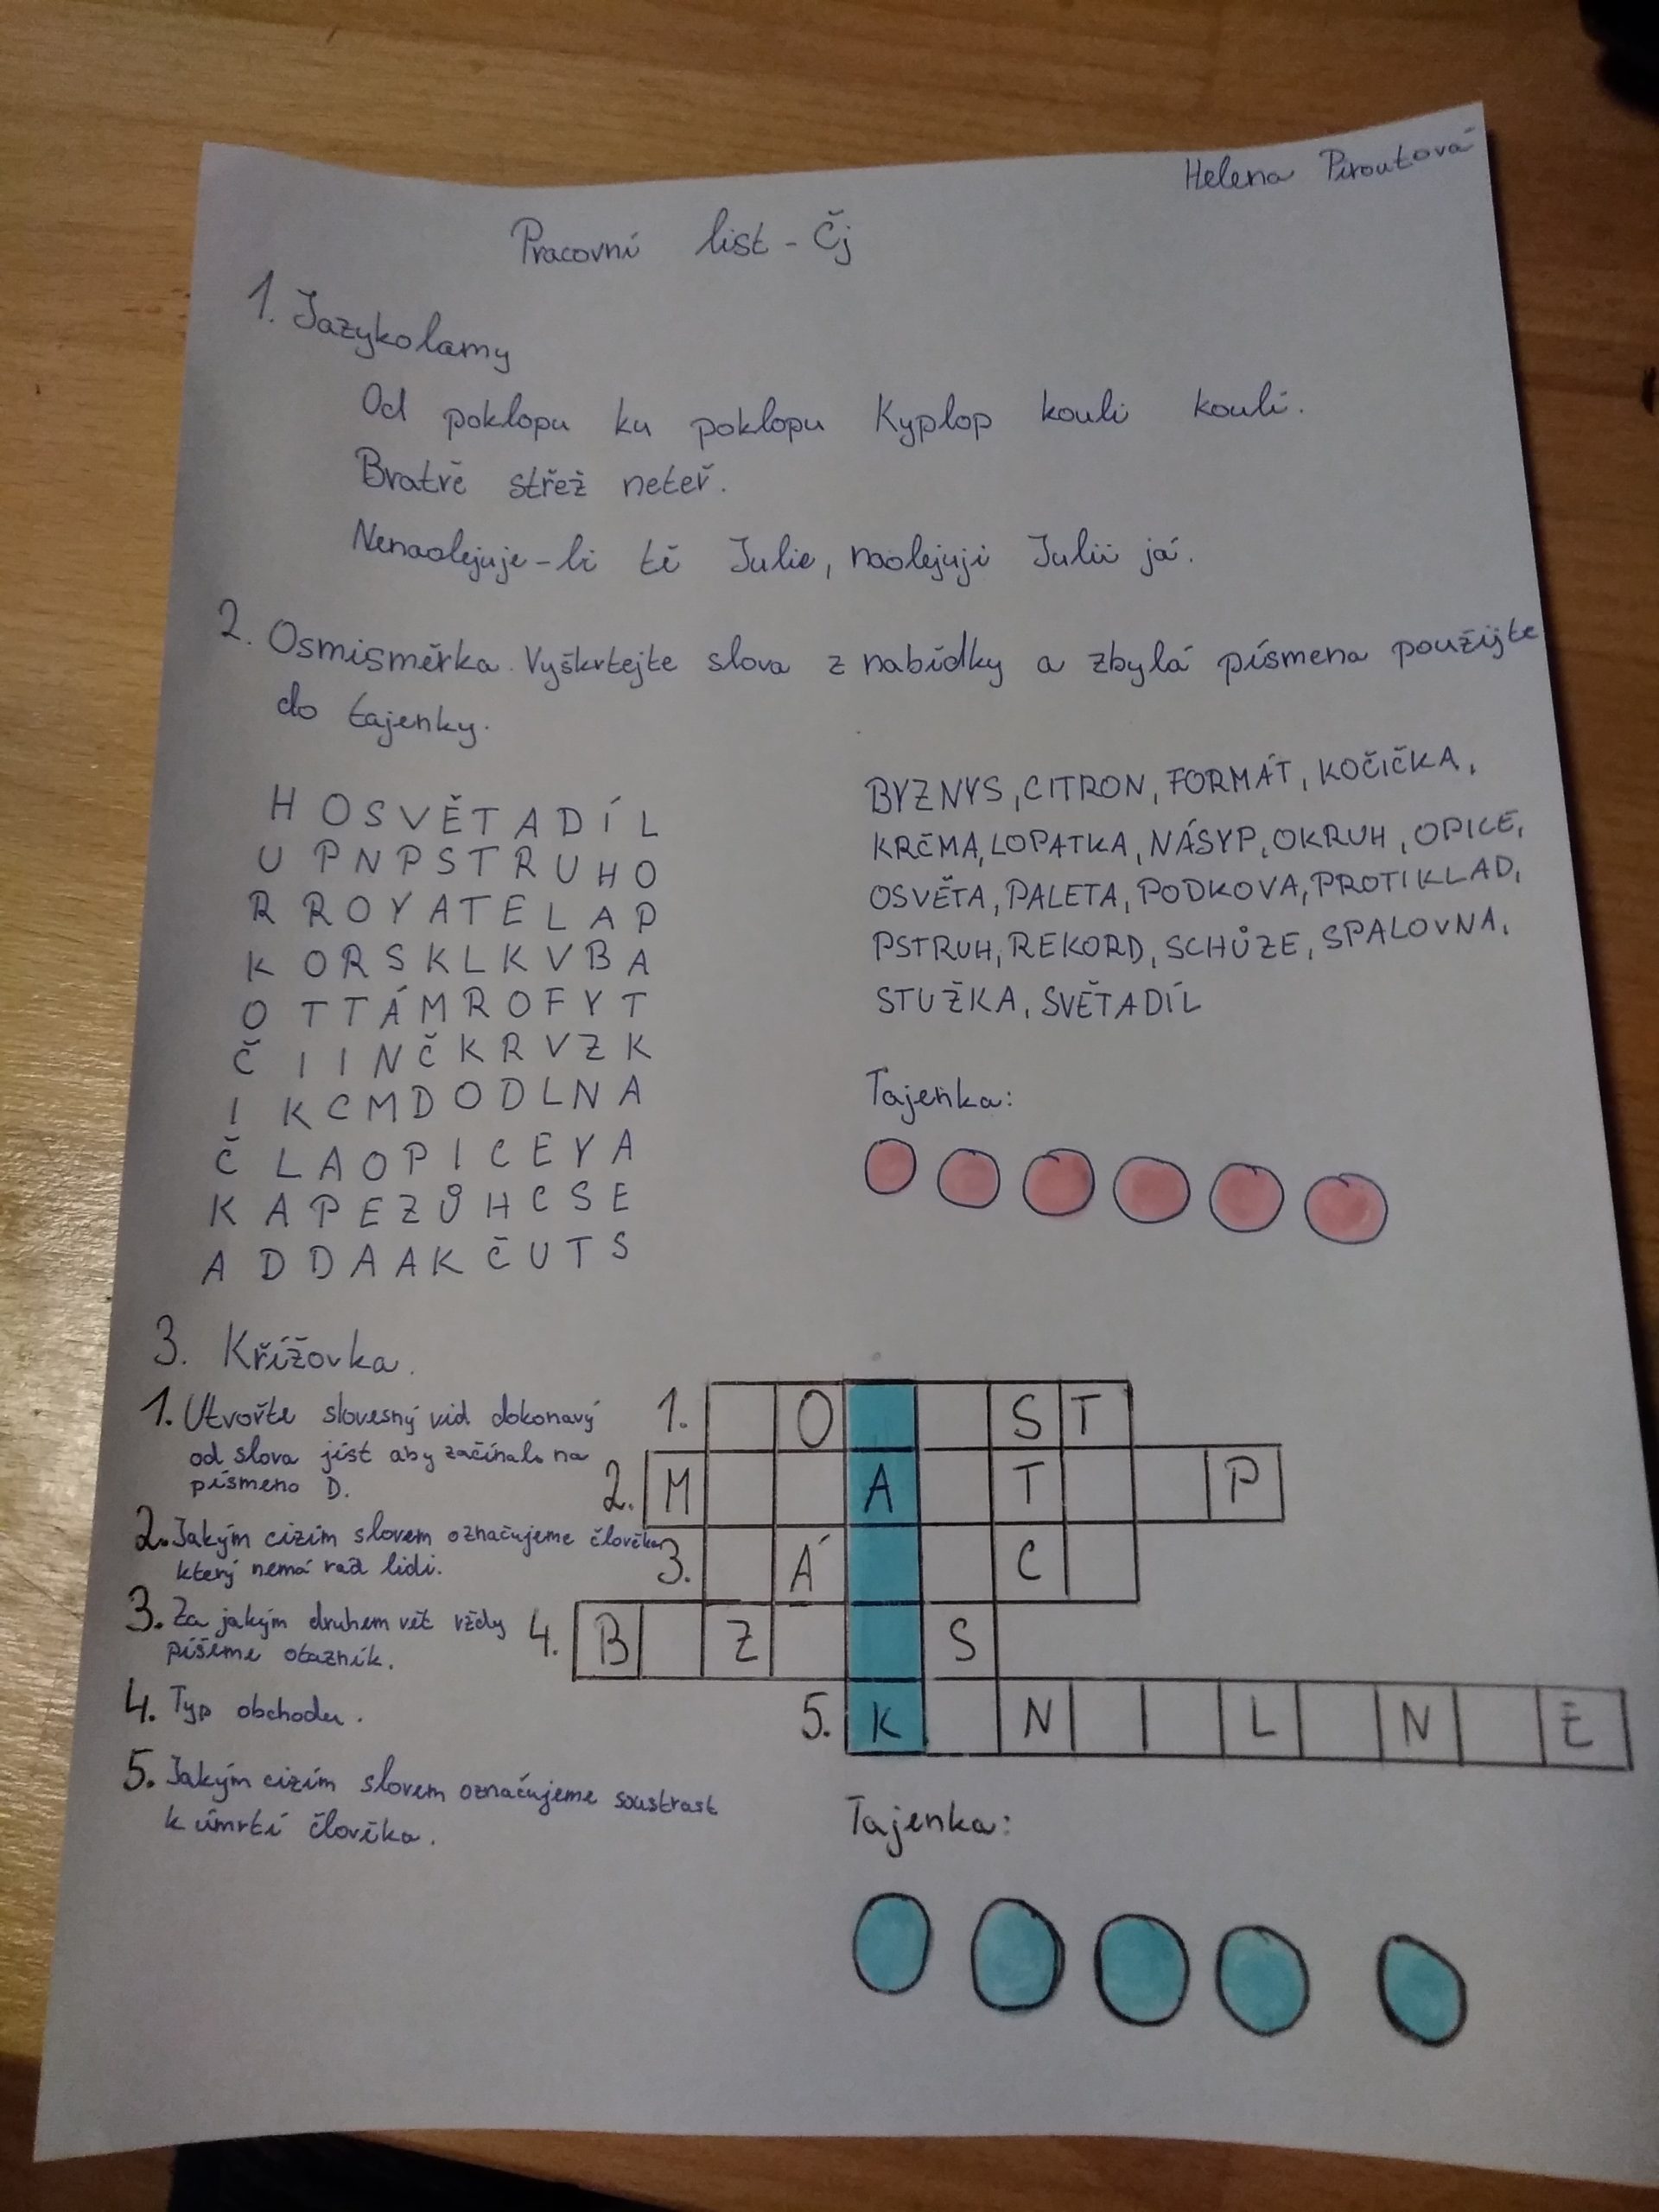 Helena Piroutová
Pracovní list - Čj
1. Jazykolamy
Od poklopu ku poklopu Kyplop koulí koulí.
Bratře střež neteř.
Nenaolejuje-li tě Julie, naolejuji Julii já.
2. Osmisměrka. Vyškrtejte slova z nabídky a zbylá písmena použijte
do tajenky.
H O S V Ě T A D Í L
U P N P S T R U H O
R R O Y A T E L A P
K O R S K L K V B A
O T T Á M R O F Y T
Č I I N Č K R V Z K
I K C M D O D L N A
Č L A O P I C E Y A
K A P E Z Ů H C S E
A D D A A K Č U T S
BYZNYS, CITRON, FORMÁT, KOČIČKA,
KRČMA, LOPATKA, NÁSYP, OKRUH, OPICE,
OSVĚTA, PALETA, PODKOVA, PROTIKLAD,
PSTRUH, REKORD, SCHŮZE, SPALOVNA,
STUŽKA, SVĚTADÍL
Tajenka:
3. Křížovka.
1. Utvořte slovesný vid dokonavý
od slova jíst aby začínalo na
písmeno D.
2. Jakým cizím slovem označujeme člověka
který nemá rád lidi.
3. Za jakým druhem vět vždy
píšeme otazník.
4. Typ obchodu.
5. Jakým cizím slovem označujeme soustrast
k úmrtí člověka.
1. O S T
2. M A T P
3. Á C
4. B Z S
5. K N L N E
Tajenka: